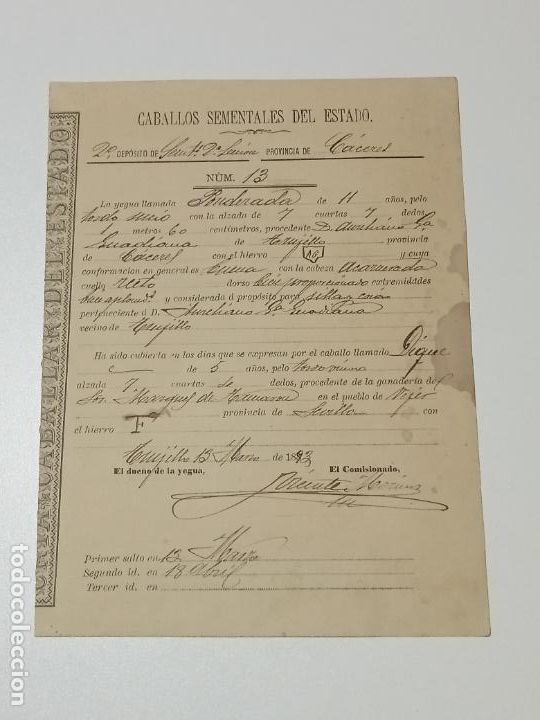 CABALLOS SEMENTALES DEL ESTADO.
2º DEPÓSITO DE PROVINCIA DE Cáceres
NÚM. 13
La yegua llamada Ponderada de 11 años, pelo
tordo con la alzada de 7 cuartas 7 dedos,
1 metros 60 centímetros, procedente D. Aureliano Gª
Guadiana de Trujillo provincia
de Cáceres con el hierro AG y cuya
conformación en general es buena con la cabeza Acarnerada
cuello Recto dorso bien proporcionado extremidades
bien aplomds y considerada á propósito para silla y
perteneciente á D. Aureliano Gª Guadiana
vecino de Trujillo
Ha sido cubierta en los días que se expresan por el caballo llamado Dique
de 5 años, pelo tordo
alzada 7 cuartas de dedos, procedente de la ganadería del
Sr. Marques de en el pueblo de
provincia de Sevilla con el
hierro F
Trujillo 13 Marzo de 1893
El dueño de la yegua, El Comisionado,
Vicente
Primer salto en 13 Marzo
Segundo id. en 18 Abril
Tercer id. en
CABALLAR DEL ESTADO
todocoleccion.net